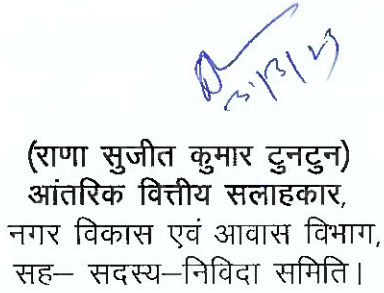 31/3/23
(राणा सुजीत कुमार टुनटुन)
आंतरिक वित्तीय सलाहकार,
नगर विकास एवं आवास विभाग,
सह– सदस्य–निविदा समिति।